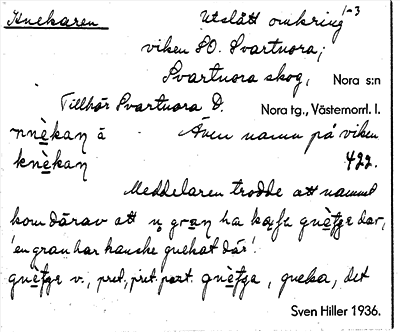 Knekaren Utslått omkring 1-3
viken SO. Svartnora;
Svartnora skog, Nora s:n
Tillhör Svartnora D. Nora tg., Västernorrl. l.
nnèkaṇ å Även namn på viken
knèkaṇ 422.
Meddelaren trodde att namnet
kom därav att ṇ graṇ ha kaṣhe gnètge dar,
'en gran har kanske gnekat där'.
gnètge v., pret., pret. part. gnètga, gneka, det
Sven Hiller 1936.